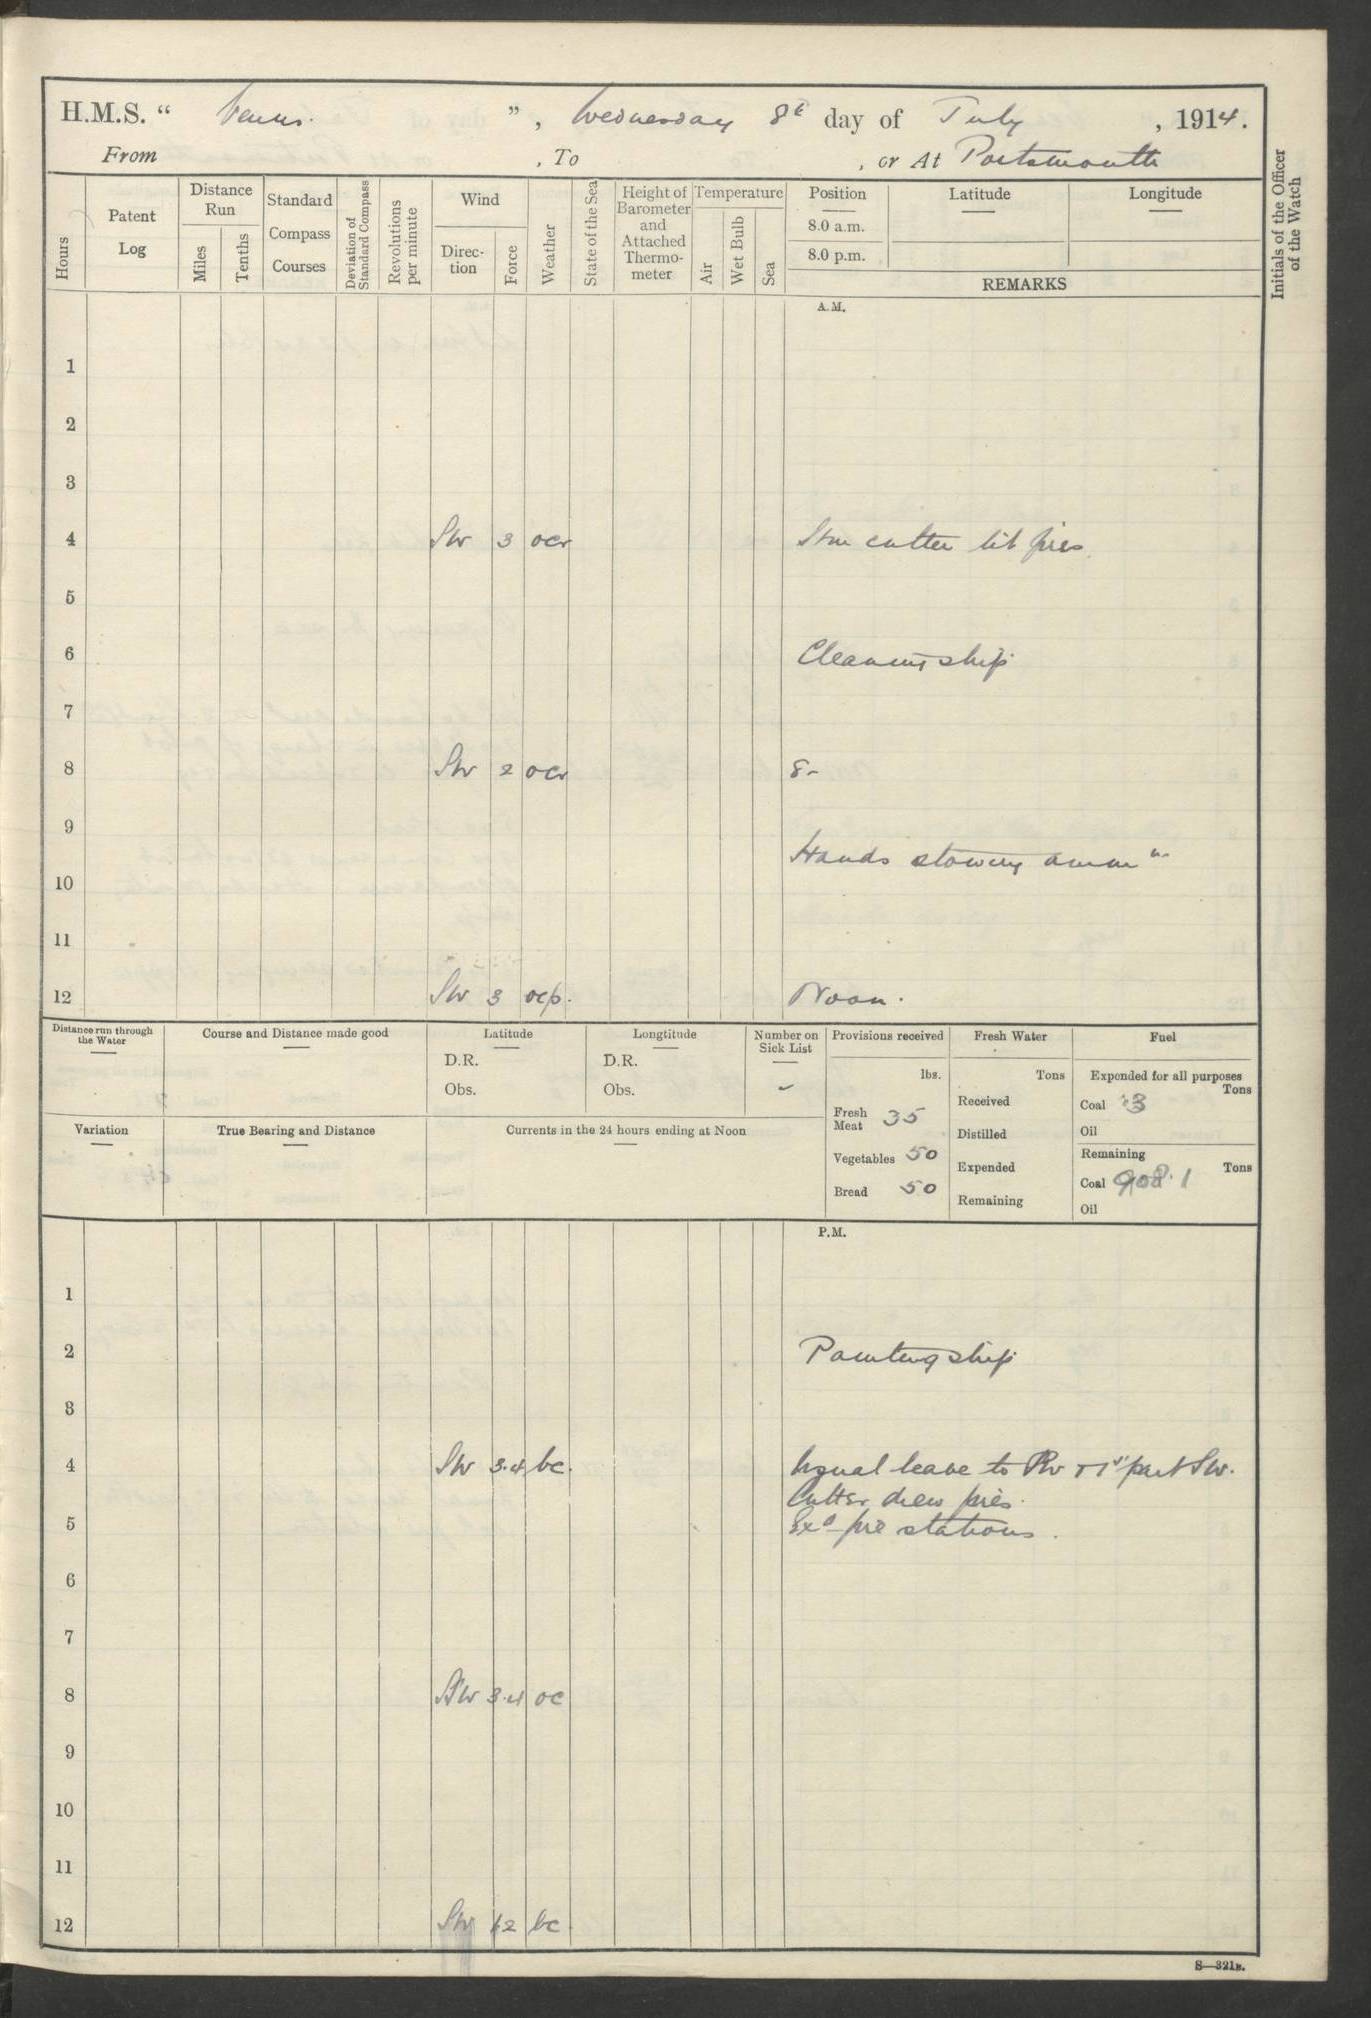 H.M.S. " Venus. ", Wednesday 8th day of July, 1914.
From , To , or At Portsmouth
Hours
Patent Log
Distance Run
Miles
Tenths
Standard Compass Courses
Deviation of Standard Compass
Revolutions per minute
Wind
Direction
Force
Weather
State of the Sea
Height of Barometer and Attached Thermometer
Temperature
Air
Wet Bulb
Sea
Position
8.0 a.m.
8.0 p.m.
Latitude
Longitude
REMARKS
Initials of the Officer of the Watch
A.M.
1
2
3
4 SW 3 ocr Stm cutter lit fires
5
6 Cleaning ship
7
8 SW 2 ocr 8-
9
Hands stowing ammn
10
11
12 SW 3 ocp. Noon.
Distance run through the Water
Course and Distance made good
Latitude
D.R.
Obs.
Longtitude
D.R.
Obs.
Number on Sick List
Provisions received
lbs.
Fresh Meat 35
Vegetables 50
Bread 50
Fresh Water
Tons
Received
Distilled
Expended
Remaining
Fuel
Expended for all purposes
Tons
Coal 3
Oil
Remaining
Tons
Coal 908.1
Oil
Variation
True Bearing and Distance
Currents in the 24 hours ending at Noon
P.M.
1
2 Painting ship
3
4 SW 3.4 bc. Usual leave to PW + 1st part SW.
Cutter drew fires.
5 Exd fire stations.
6
7
8 SW 3.4 oc
9
10
11
12 SW 1.2 bc
S—321B.